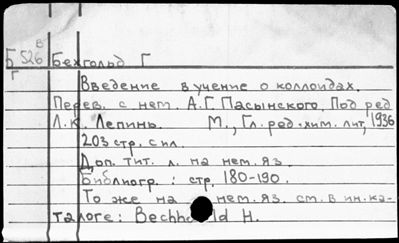 Б 526 в
Г
Бехгольд Г
Введение в учение о коллоидах.
Перев. с нем. А.Г. Пасынского. Под ред
Л.К. Лепинь. М., Гл. ред. хим. лит, 1936
203 стр. с ил.
Доп. тит. л. на нем. яз.
Библиогр. : стр. 180-190.
То же на нем. яз. см. в ин. ка-
талоге: Bechhold H.